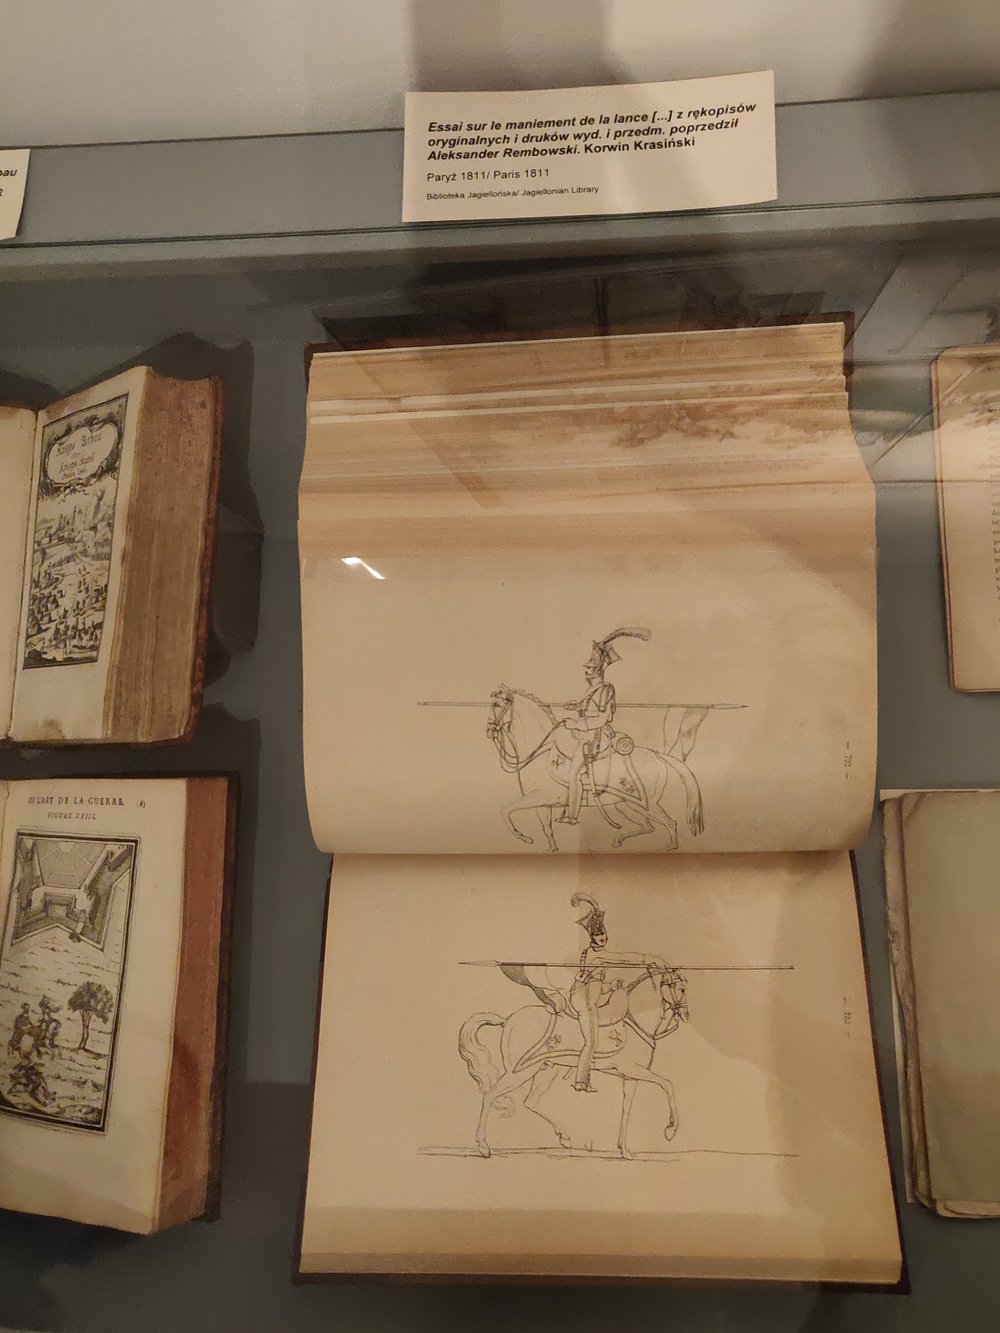 Essai sur le maniement de la lance [...] z rękopisów
oryginalnych i druków wyd. i przedm. poprzedził
Aleksander Rembowski. Korwin Krasiński
Paryż 1811/ Paris 1811
Biblioteka Jagiellońska/ Jagiellonian Library
Kriegs Arbeit
Kriegs Kunst
DE LA GUERRE.
FIGURE XXIII.